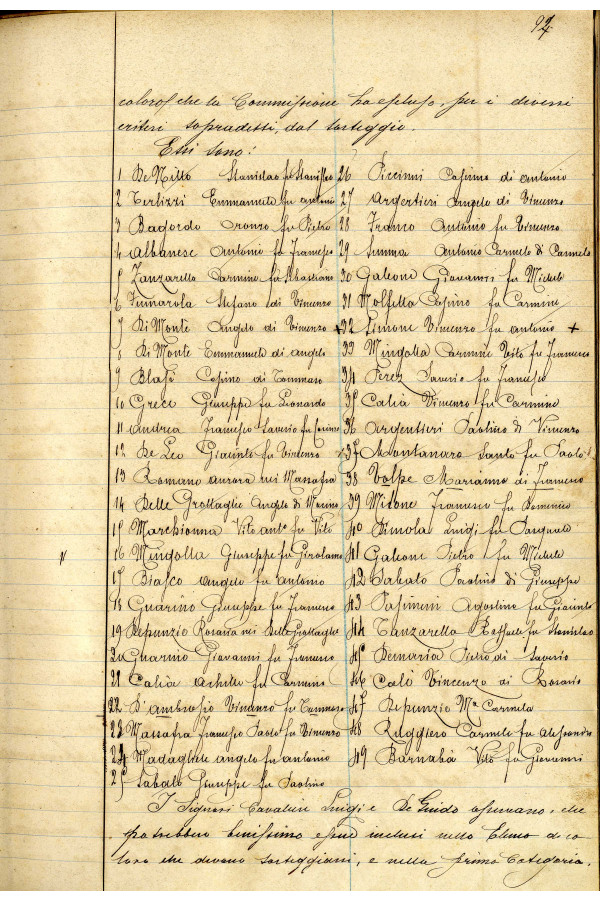 94
coloro che la Commissione ha escluso, per i diversi
criteri sopradetti, dal sorteggio.
Essi sono:
1 De Nitto Stanislao fu Stanislao
2 Terlizzi Emmanuele fu Antonio
3 Bagordo Oronzo fu Pietro
4 Albanese Antonio fu Francesco
5 Zanzarella Carmine fu Sebastiano
6 Funnarola Stefano di Vincenzo
7 Di Monte Angelo di Vincenzo
8 Di Monte Emmanuele di Angelo
9 Blasi Cosimo di Tommaso
10 Greco Giuseppe fu Leonardo
11 Andrea Francesco Saverio fu
12 De Leo Giacinto fu Vincenzo
13 Romano Aurora nei Massafra
14 Delle Grottaglie Angelo di Marino
15 Marchionna Vito Anto fu Vito
16 Mingolla Giuseppe fu Girolamo
17 Biasco Angelo fu Antonio
18 Guarino Giuseppe fu Francesco
19 Depunzio Rosaria nei Delle Grottaglie
20 Guarino Giovanni fu Francesco
21 Calia Achille fu Carmine
22 D'Ambrosio Vincenzo fu Tommaso
23 Massafra Francesco Paolo fu Vincenzo
24 Madaghiele Angelo fu Antonio
25 Sabato Giuseppe fu Paolino
26 Piccinni Cosimo di Antonio
27 Argentieri Angelo di Vincenzo
28 Franco Antonio fu Vincenzo
29 Summa Antonio Carmelo di Carmelo
30 Galeone Giovanni fu Michele
31 Molfetta Cosimo fu Carmine
+ 32 Simone Vincenzo fu Antonio +
33 Mingolla Carmine Vito fu Francesco
34 Perez Saverio fu Francesco
35 Calia Vincenzo fu Carmine
36 Argentieri Paolino di Vincenzo
37 Montanaro Santo fu Paolo
38 Volpe Marianno di Francesco
39 Mitone Francesco fu Domenico
40 Simola Luigi fu Pasquale
41 Galeone Pietro fu Michele
42 Sabato Paolino di Giuseppe
43 Agostino fu Giacinto
44 Tanzarella Raffaele fu Stanislao
45 Demaria Pietro di Saverio
46 Calò Vincenzo di Rosario
47 Depunzio Ma Carmela
48 Ruggiero Carmelo fu Alessandro
49 Barnabà Vito fu Giovanni
I Signori Cavaliere Luigi e De Guido osservano, che
potrebbero benissimo essere inclusi nello Elenco di co-
loro che devono sorteggiarsi, e nella prima Categoria.